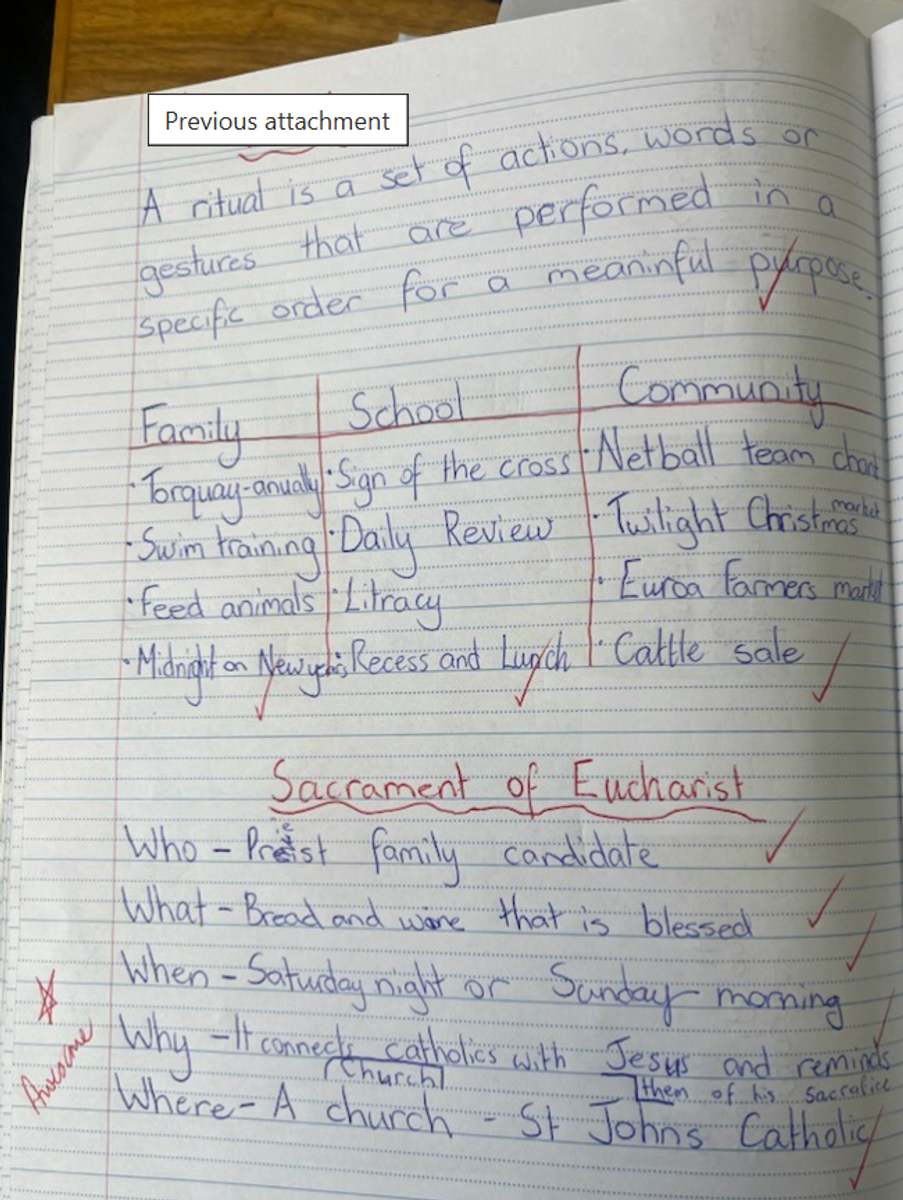 Previous attachment
A ritual is a set of actions, words or
gestures that are performed in a
specific order for a meaninful purpose.
Family School Community
· Torquay-anually · Sign of the cross · Netball team chant
· Swim training · Daily Review · Twilight Christmas market
· Feed animals · Litracy · Euroa farmers market
· Midnight on New · Recess and Lunch · Cattle sale
Sacrament of Eucharist
Who - Preist family candidate
What - Bread and wine that is blessed
When - Saturday night or Sunday morning
Why - It connects catholics with Jesus and reminds
them of his sacrafice
Where - A church - St Johns Catholic
Church
Awesome